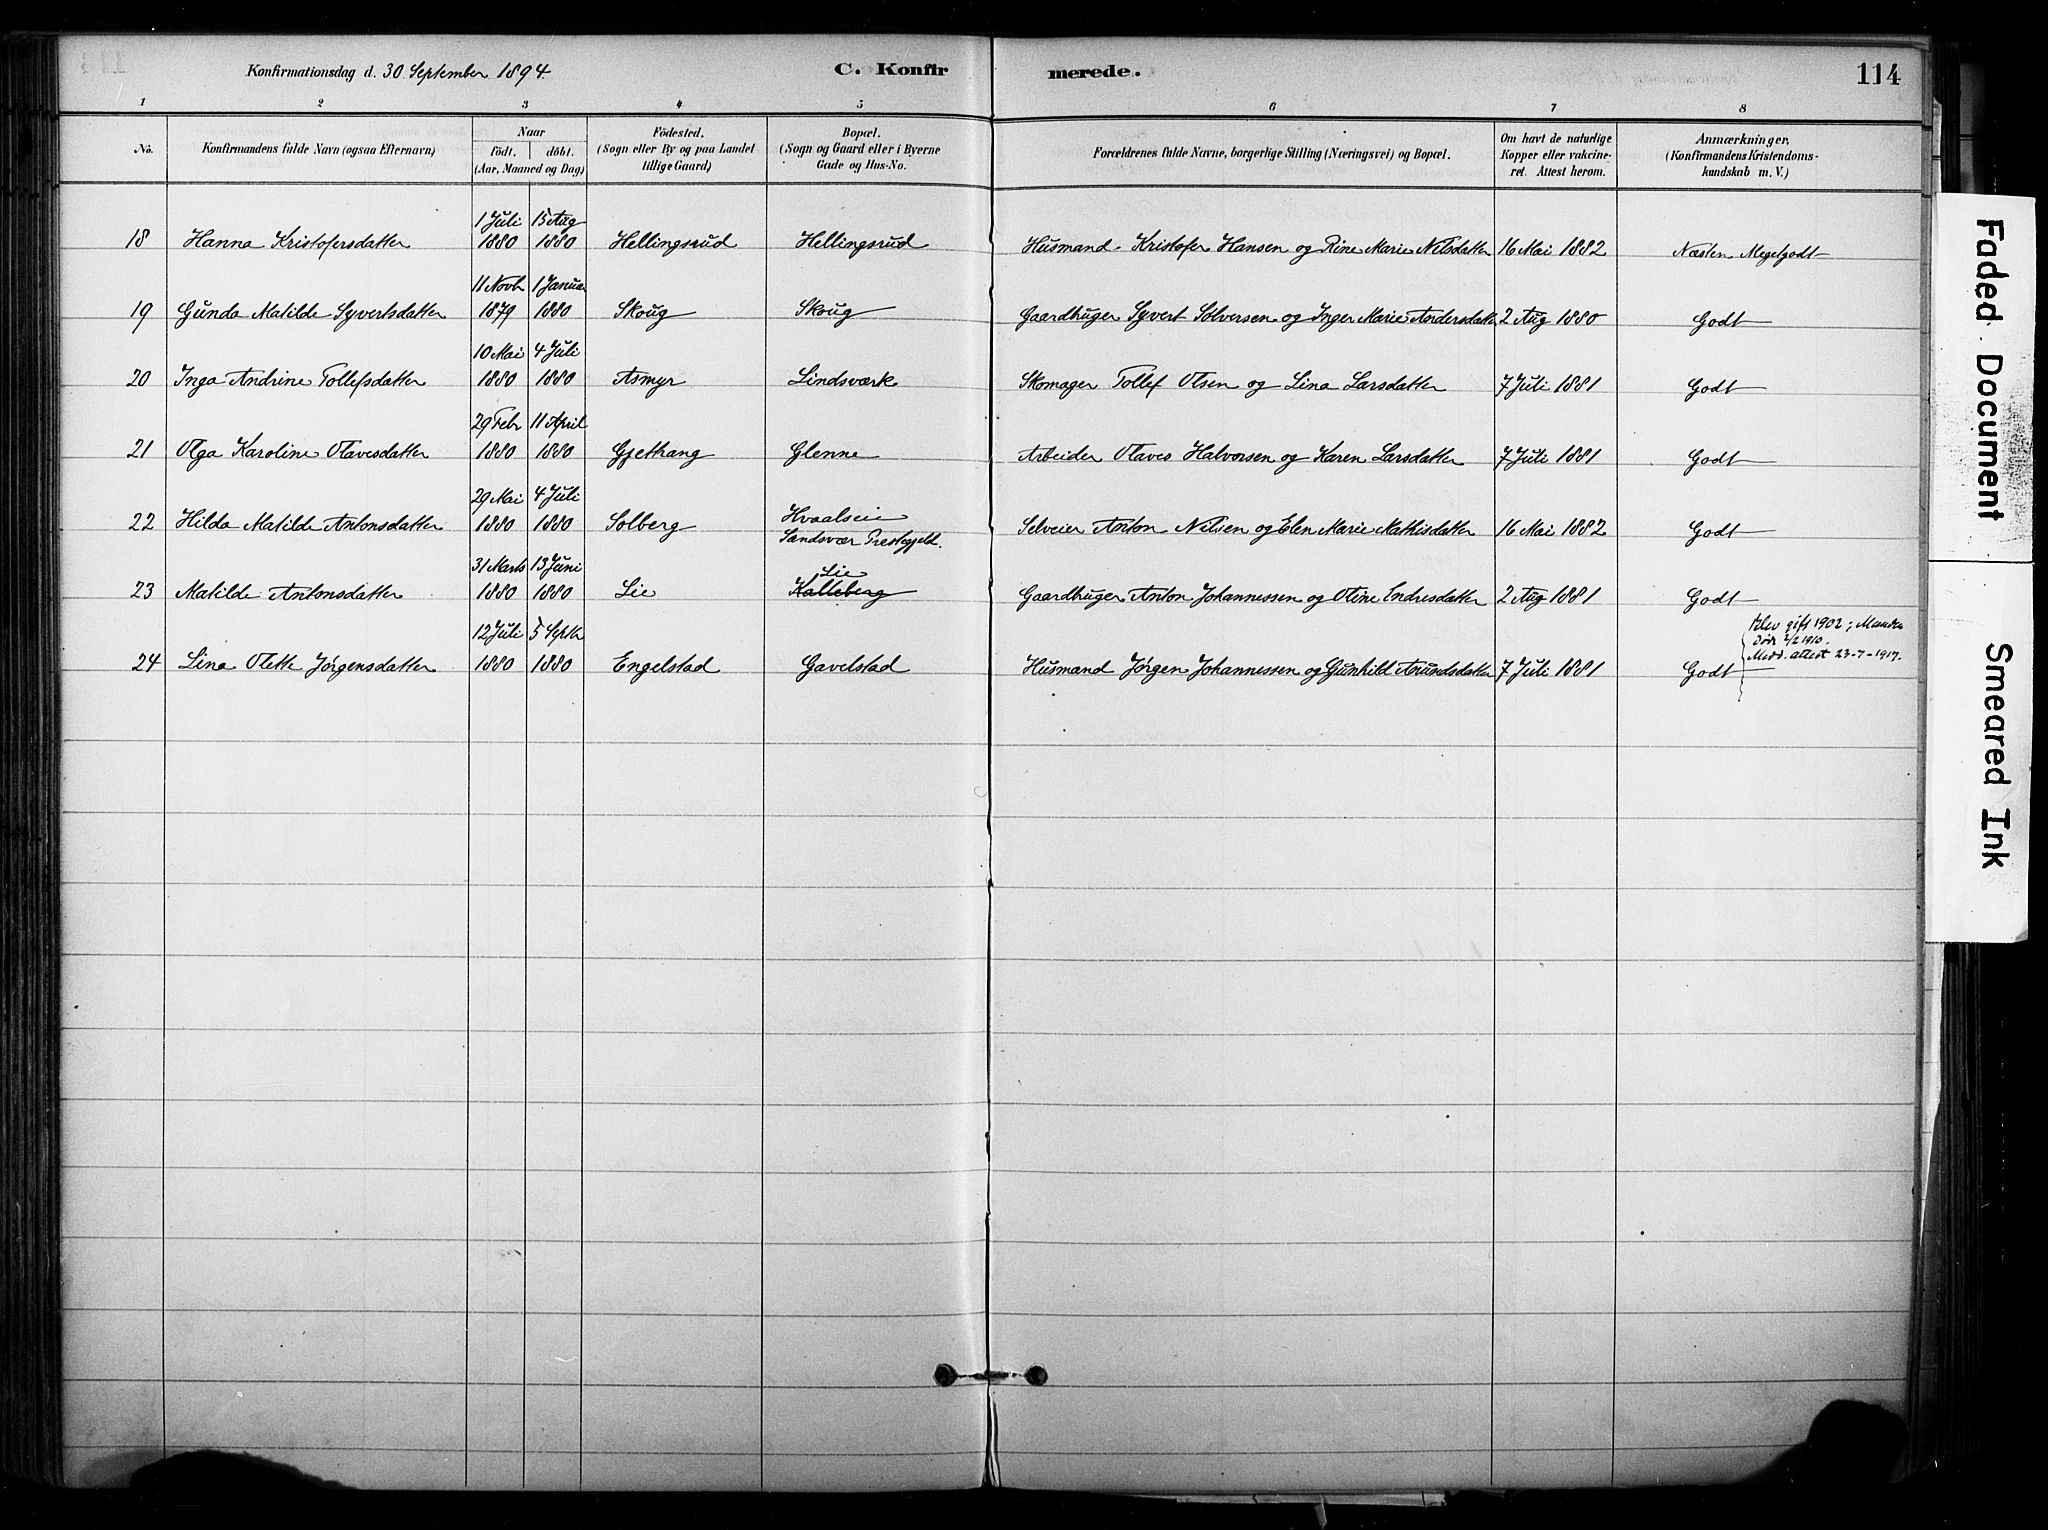 Konfirmationsdag d. 30 September 1894.
C. Konfirmerede.
114
1 2 3 4 5 6 7 8
No.
Konfirmandens fulde Navn (ogsaa Efternavn)
Naar
födt. döbt.
(Aar, Maaned og Dag)
Födested.
(Sogn eller By og paa Landet
tillige Gaard)
Bopæl.
(Sogn og Gaard eller i Byerne
Gade og Hus-No.
Forældrenes fulde Navne, borgerlige Stilling (Næringsvei) og Bopæl.
Om havt de naturlige
Kopper eller vakcine-
ret. Attest herom.
Anmærkninger.
(Konfirmandens Kristendoms-
kundskab m. V.)
1 Juli 15 Aug
18 Hanna Kristofersdatter 1880 1880 Hellingsrud Hellingsrud Husmand Kristofer Hansen og Rine Marie Nilsdatter 16 Mai 1882 Næsten Megetgodt
11 Novb 1 Januar
19 Gunda Matilde Syvertsdatter 1879 1880 Skoug Skoug Gaardbruger Syvert Solversen og Inger Marie Andersdatter 2 Aug 1880 Godt
10 Mai 4 Juli
20 Inga Andrine Tollefsdatter 1880 1880 Asmyr Lindsværk Skomager Tollef Olsen og Lina Larsdatter 7 Juli 1881 Godt
29 Febr 11 April
21 Olga Karoline Olavesdatter 1880 1880 Gjethang Glenne Arbeider Olaves Halvorsen og Karen Larsdatter 7 Juli 1881 Godt
29 Mai 4 Juli
22 Hilda Matilde Antonsdatter 1880 1880 Solberg Hvaalseie Selveier Anton Nilsen og Elen Marie Mathisdatter 16 Mai 1882 Godt
Sandsvær Prestegjeld.
31 Marts 13 Juni Lie
23 Matilde Antonsdatter 1880 1880 Lie Kalleberg Gaardbruger Anton Johannessen og Oline Endresdatter 2 Aug 1881 Godt
12 Juli 5 Septb
Blev gift 1902; Manden
død 2/2 1910.
Medd. attest 23-7-1917.
24 Lina Olette Jørgensdatter 1880 1880 Engelstad Gavelstad Husmand Jørgen Johannessen og Gunhild Amundsdatter 7 Juli 1881 Godt
Faded Document
Smeared Ink